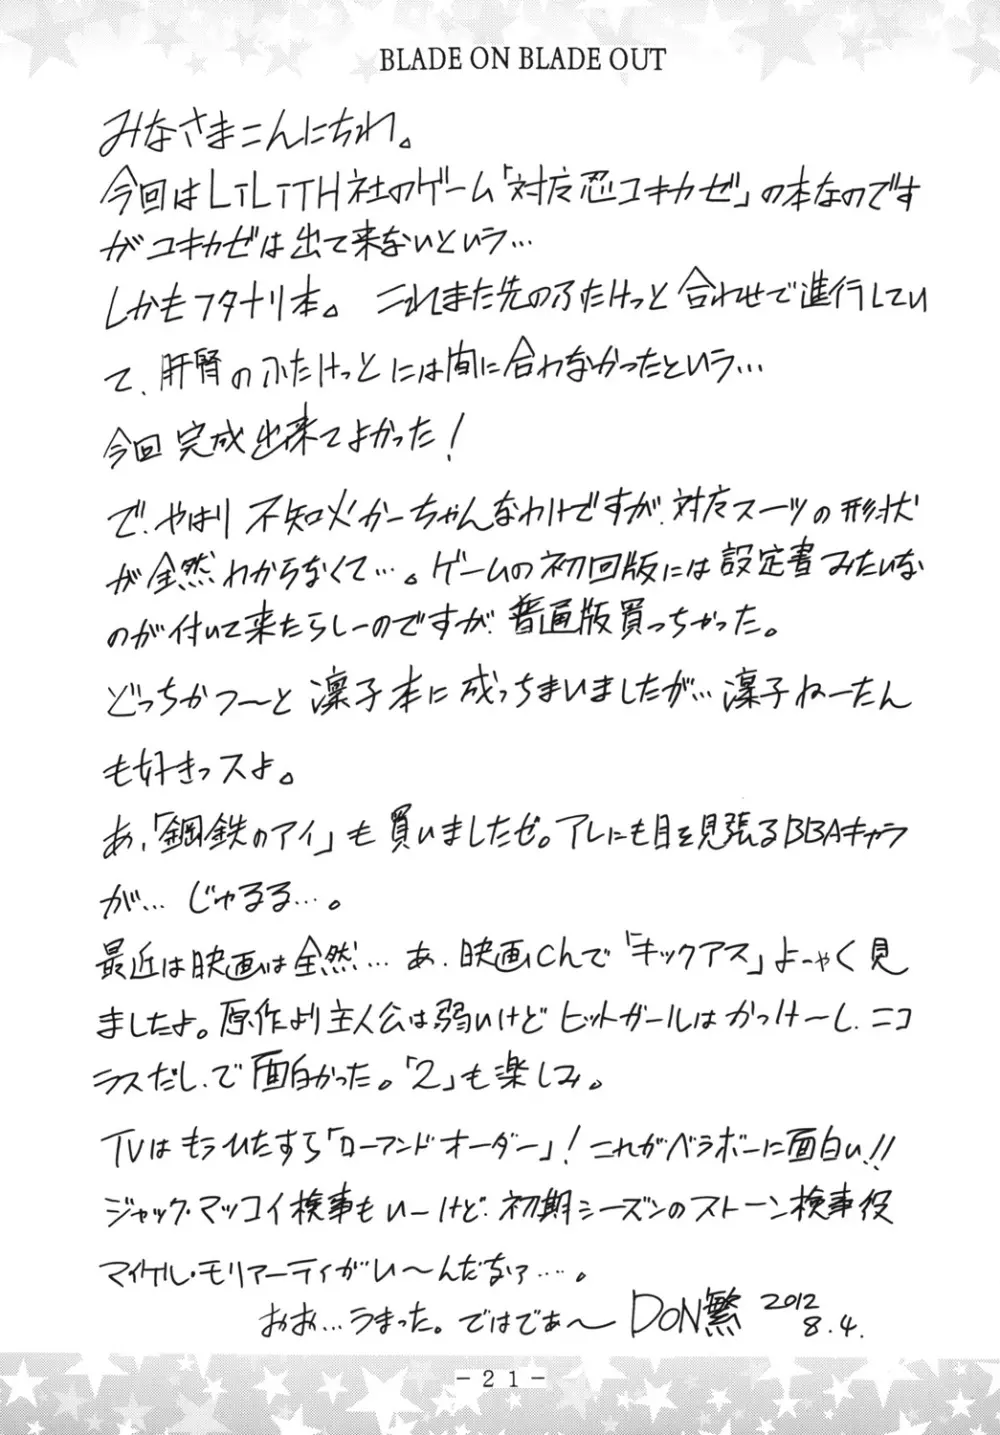 BLADE ON BLADE OUT
みなさまこんにちわ。
今回はLILITH社のゲーム「対魔忍ユキカゼ」の本なのです
がユキカゼは出て来ないという…
しかもフタナリ本。これまた先のふたけっと合わせで進行してい
て、肝腎のふたけっとには間に合わなかったという…
今回完成出来てよかった!
で、やはり不知火かーちゃんなわけですが、対魔スーツの形状
が全然わからなくて…。ゲームの初回版には設定書みたいな
のが付いて来たらしーのですが、普通版買っちゃった。
どっちかつ〜と凜子本に成っちまいましたが…凜子ねーたん
も好きっスよ。
あ、「鋼鉄のアイ」も買いましたぜ。アレにも目を見張るBBAキャラ
が… じゅるる…。
最近は映画は全然… あ、映画chで「キックアス」よーやく見
ましたよ。原作より主人公は弱いけどヒットガールはかっけ〜し、ニコ
ラスだし、で面白かった。「2」も楽しみ。
TVはもうひたすら「ローアンドオーダー」!これがベラボーに面白い!!
ジャック・マッコイ検事もいーけど、初期シーズンのストーン検事役
マイケル・モリアーティがい〜んだなァ…。
おお…うまった。ではでぁ〜 DON繁 2012
8.4.
-21-